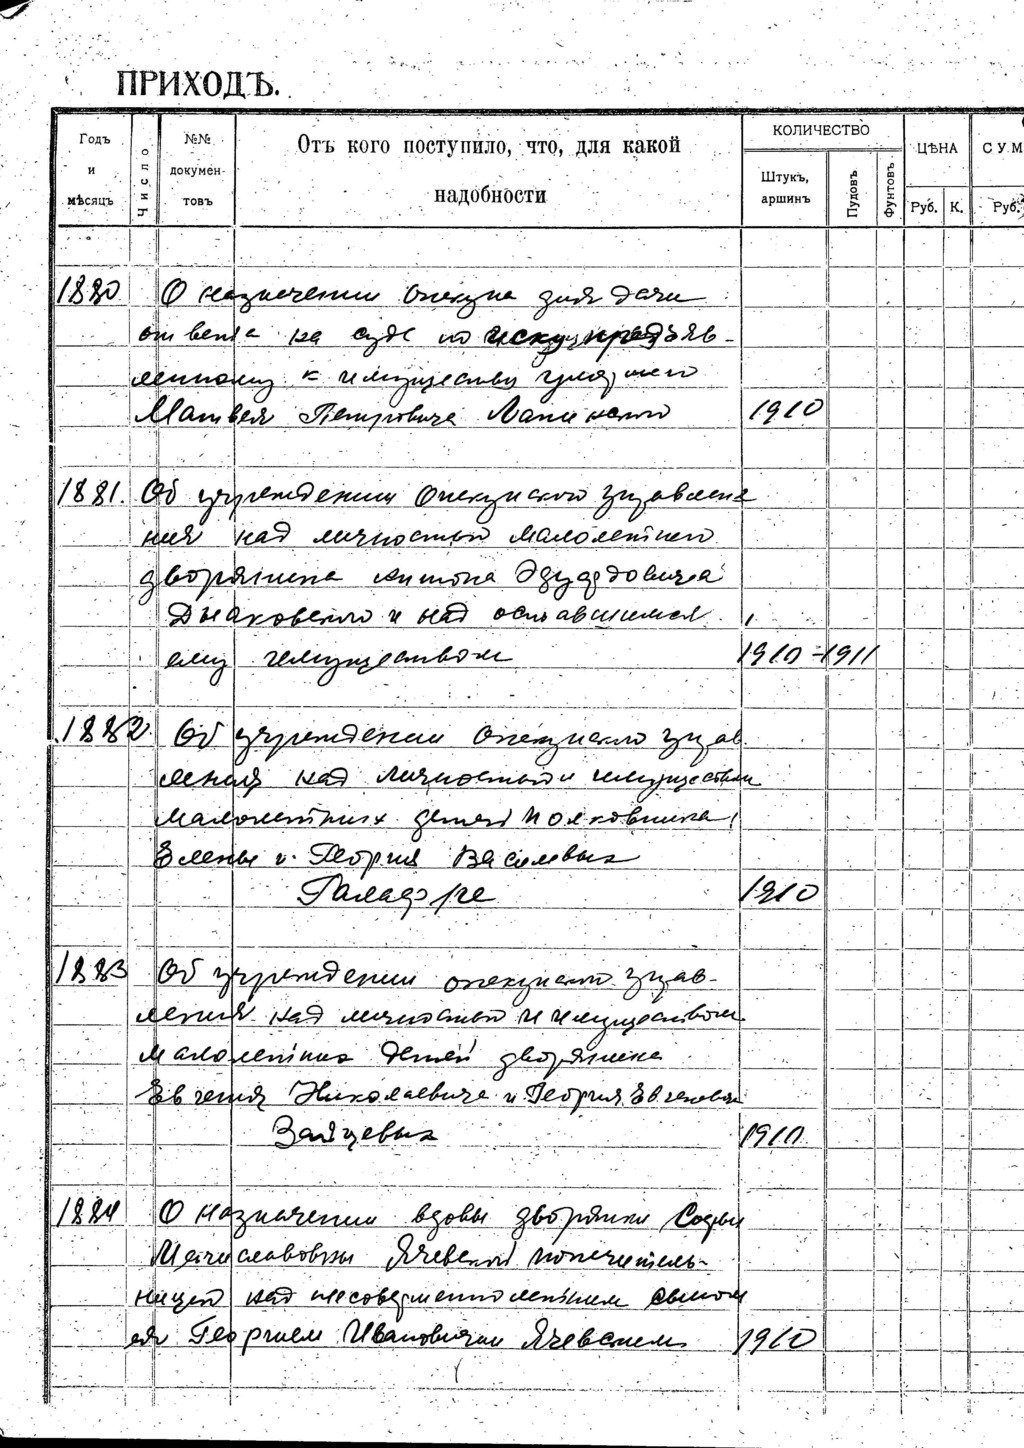 ПРИХОДЪ.
Годъ и мѣсяцъ
Число
№№ докумен-товъ
Отъ кого поступило, что, для какой надобности
КОЛИЧЕСТВО
Штукъ, аршинъ
Пудовъ
Фунтовъ
ЦѢНА
Руб. К.
СУМ
Руб.
1880 О назначении опекуна для дачи
ответа на суде по иску, предъяв-
ленному к имуществу умершего
Матвея Петровича 1910
1881. Об учреждении опекунского управле
ния над личностью малолетнего
дворянина Антона Эдуардовича
и над оставшимся
ему имуществом 1910-1911
1882 Об учреждении опекунского управ
ления над личностью и имуществом
малолетних детей полковника,
Елены и Георгия Васильевых
1910
1883 Об учреждении опекунского управ-
ления над личностью и имуществом
малолетних детей дворянина
Евгения Николаевича и Георгия Евгеневича
Зайцевых 1910
1884 О назначении вдовы дворянки Софьи
Мечиславовны Ячевской попечитель-
ницей над несовершеннолетним сыном
ея Георгием Ивановичем Ячевским 1910